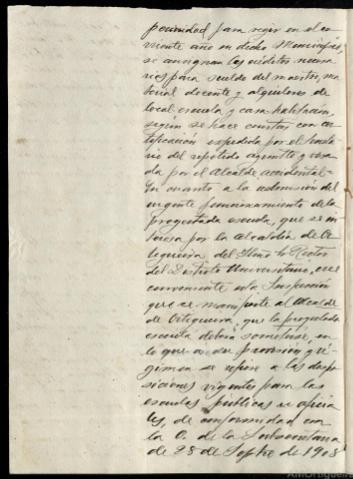 porinidad para regir en el co-
rriente año en dicho Municipio
se consignan los créditos necesa-
rios para sueldo del maestro, ma-
terial docente y alquileres de
local-escuela y casa habitación,
según se hace constar con cer-
tificación expedida por el Secreta-
rio del repetido Ayuntto y visa-
da por el Alcalde accidental-
En cuanto a la admisión del
urgente funcionamiento de la
proyectada escuela, que se in-
teresa por la Alcaldía de Or-
tigueira del Ilmo Sr Rector
del Distrito Universitario, cree
conveniente esta Inspección
que se manifieste al Alcalde
de Ortigueira, que la proyectada
escuela deberá someterse, en
lo que a su provisión y ré-
gimen se refiere a las dispo-
siciones vigentes para las
escuelas públicas no oficia-
les, de conformidad con
la O. de la Subsecretaria
de 28 de Septbre de 1908